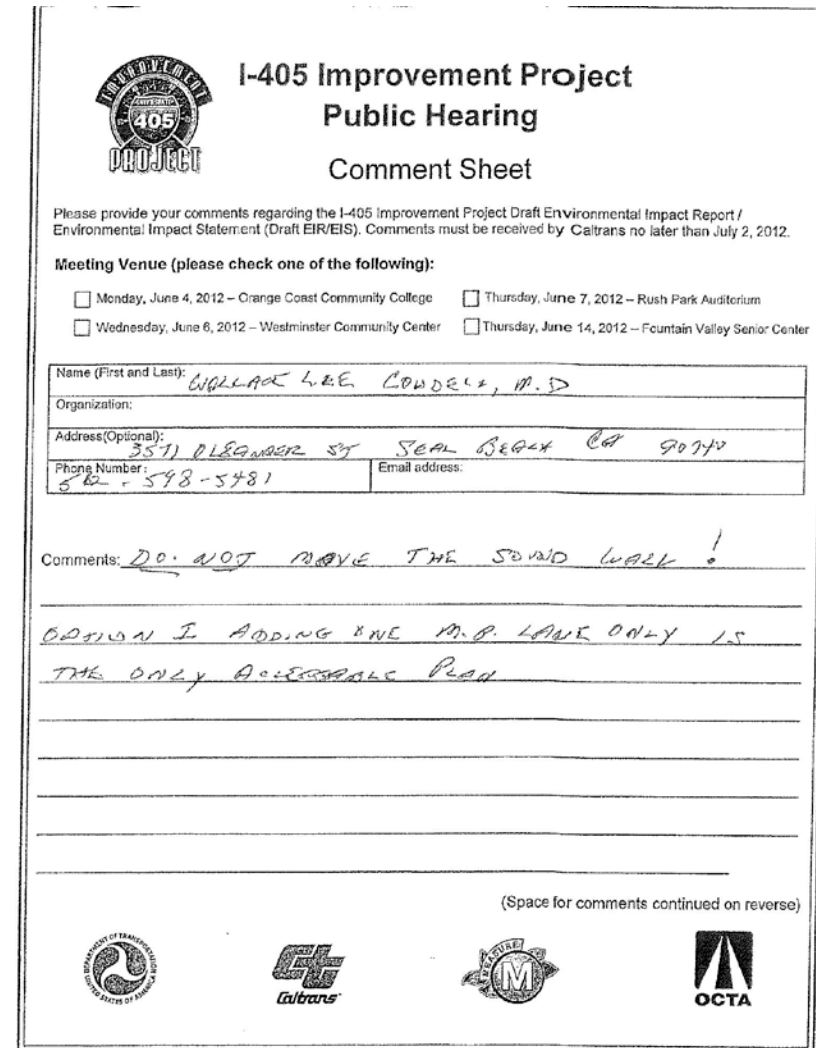 IMPROVEMENT
405
PROJECT
I-405 Improvement Project
Public Hearing
Comment Sheet
Please provide your comments regarding the I-405 Improvement Project Draft Environmental Impact Report /
Environmental Impact Statement (Draft EIR/EIS). Comments must be received by Caltrans no later than July 2, 2012.
Meeting Venue (please check one of the following):
Monday, June 4, 2012 – Orange Coast Community College
Thursday, June 7, 2012 – Rush Park Auditorium
Wednesday, June 6, 2012 – Westminster Community Center
Thursday, June 14, 2012 – Fountain Valley Senior Center
Name (First and Last): WALLACE LEE M.D
Organization:
Address(Optional): 3571 OLEANDER ST SEAL BEACH CA 90740
Phone Number: 562-598-5481
Email address:
Comments: DO NOT MOVE THE SOUND WALL!
OPTION I ADDING ONE M.P. LANE ONLY IS
THE ONLY ACCEPTABLE PLAN
(Space for comments continued on reverse)
DEPARTMENT OF TRANSPORTATION
UNITED STATES OF AMERICA
Caltrans
MEASURE M
OCTA